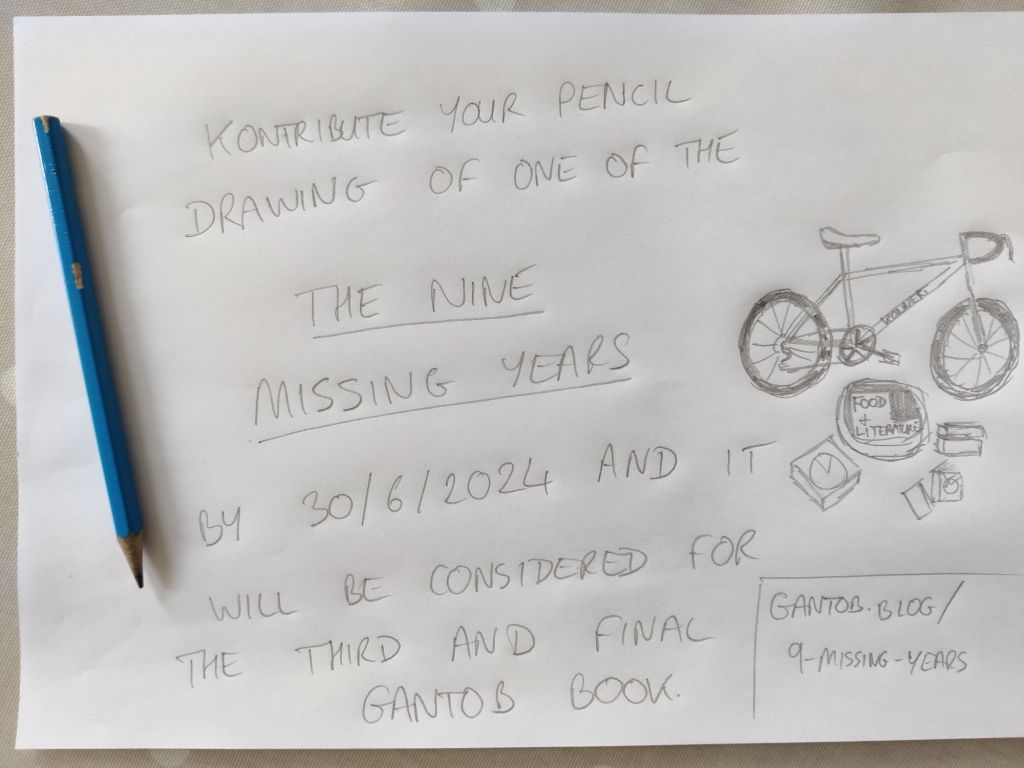 KONTRIBUTE YOUR PENCIL
DRAWING OF ONE OF THE
THE NINE
MISSING YEARS
BY 30/6/2024 AND IT
WILL BE CONSIDERED FOR
THE THIRD AND FINAL
GANTOB BOOK.
FOOD
+
LITERATURE
GANTOB.BLOG/
9-MISSING-YEARS